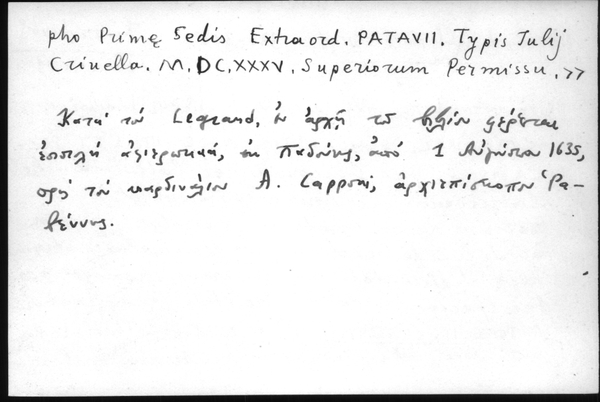 pho Primę Sedis Extraord. PATAVII. Typis Julij
Criuella. M.DC.XXXV. Superiorum Permissu. »
Κατὰ τὸν Legrand, ἐν ἀρχῇ τοῦ βιβλίου φέρεται
ἐπιστολὴ ἀφιερωτική, ἐκ Παδούης, ἀπὸ 1 Αὐγούστου 1635,
πρὸς τὸν καρδινάλιον A. Capponi, ἀρχιεπίσκοπον Ῥα-
βέννης.